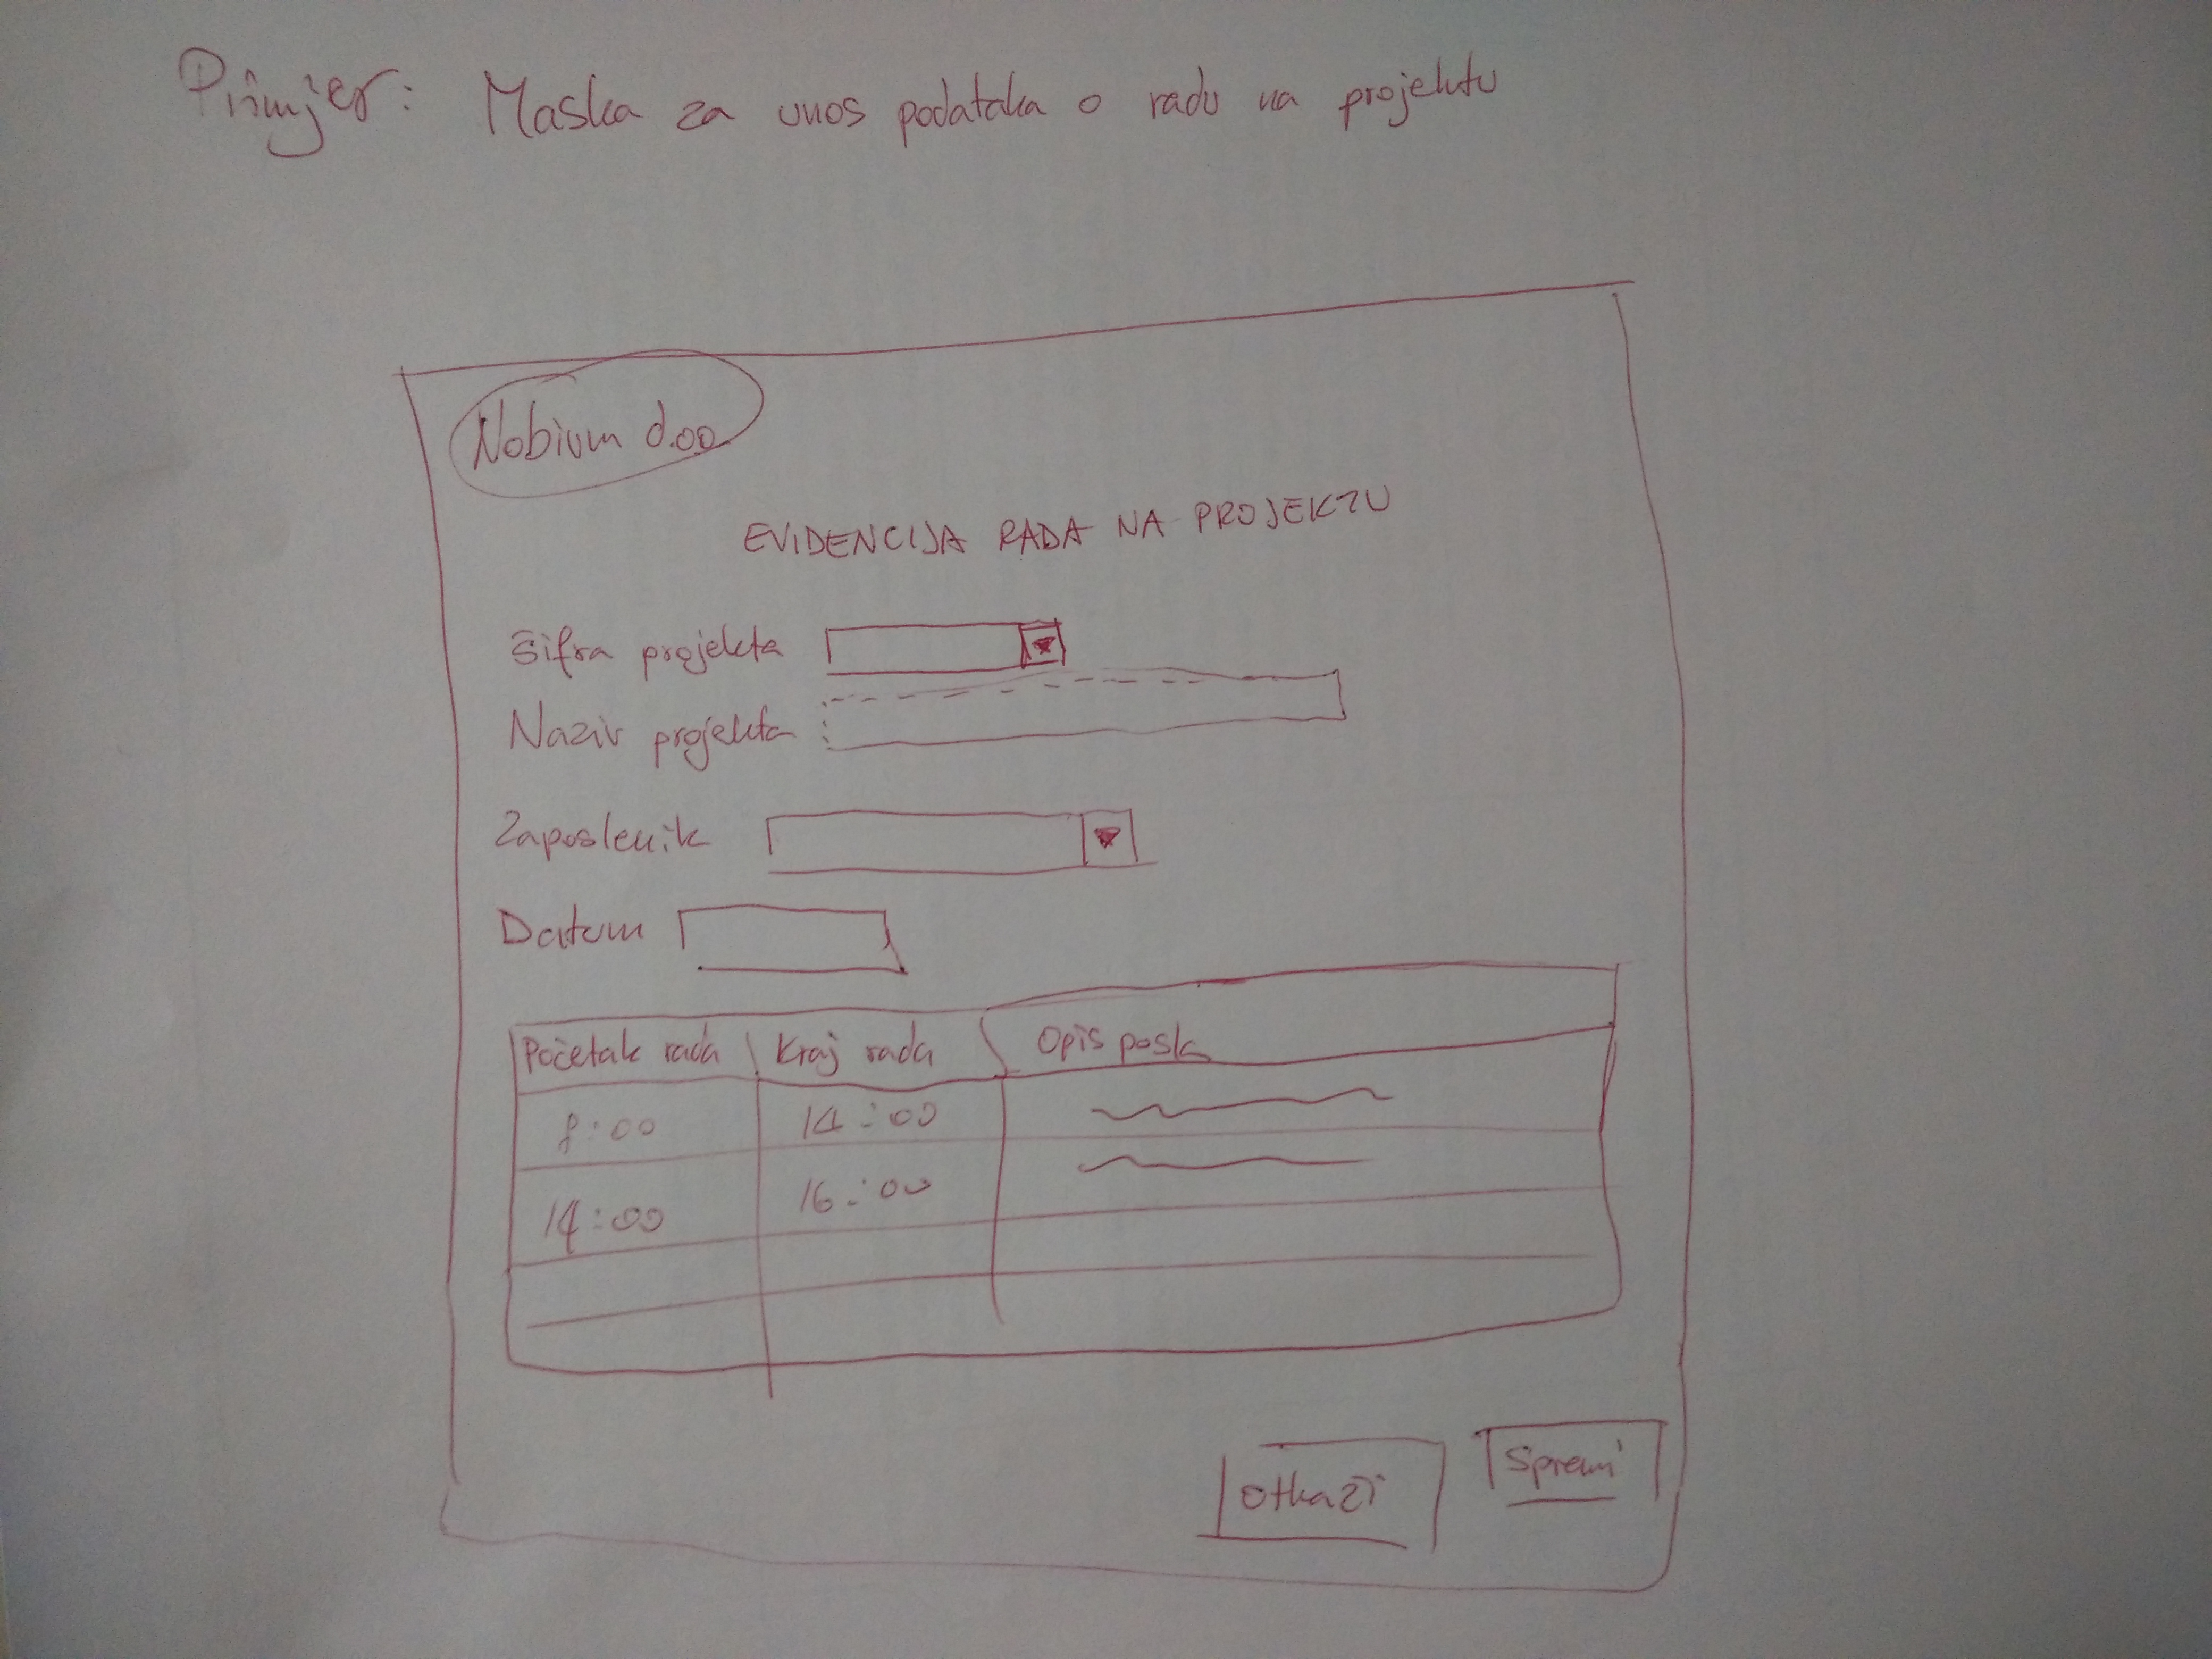 Primjer: Maska za unos podataka o radu na projektu
Nobium d.o.o.
EVIDENCIJA RADA NA PROJEKTU
Šifra projekta
Naziv projekta
Zaposlenik
Datum
Početak rada Kraj rada Opis posla
8:00 14:00
14:00 16:00
Otkaži Spremi